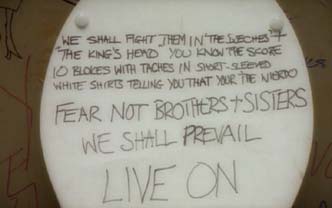 WE SHALL FIGHT THEM IN "THE BEECHES" +
"THE KING'S HEAD YOU KNOW THE SCORE
10 BLOKES WITH TACHES IN SHORT-SLEEVED
WHITE SHIRTS TELLING YOU THAT YOUR THE WEIRDO
FEAR NOT BROTHERS + SISTERS
WE SHALL PREVAIL
LIVE ON